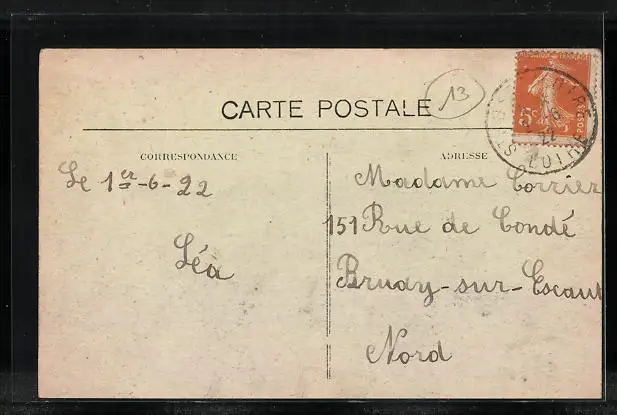 13
CARTE POSTALE
5c
POSTES
22
LOIRE
CORRESPONDANCE
ADRESSE
Le 1er-6-22
Léa
Madame Corrier
151 Rue de Condé
Bruay-sur-Escaut
Nord